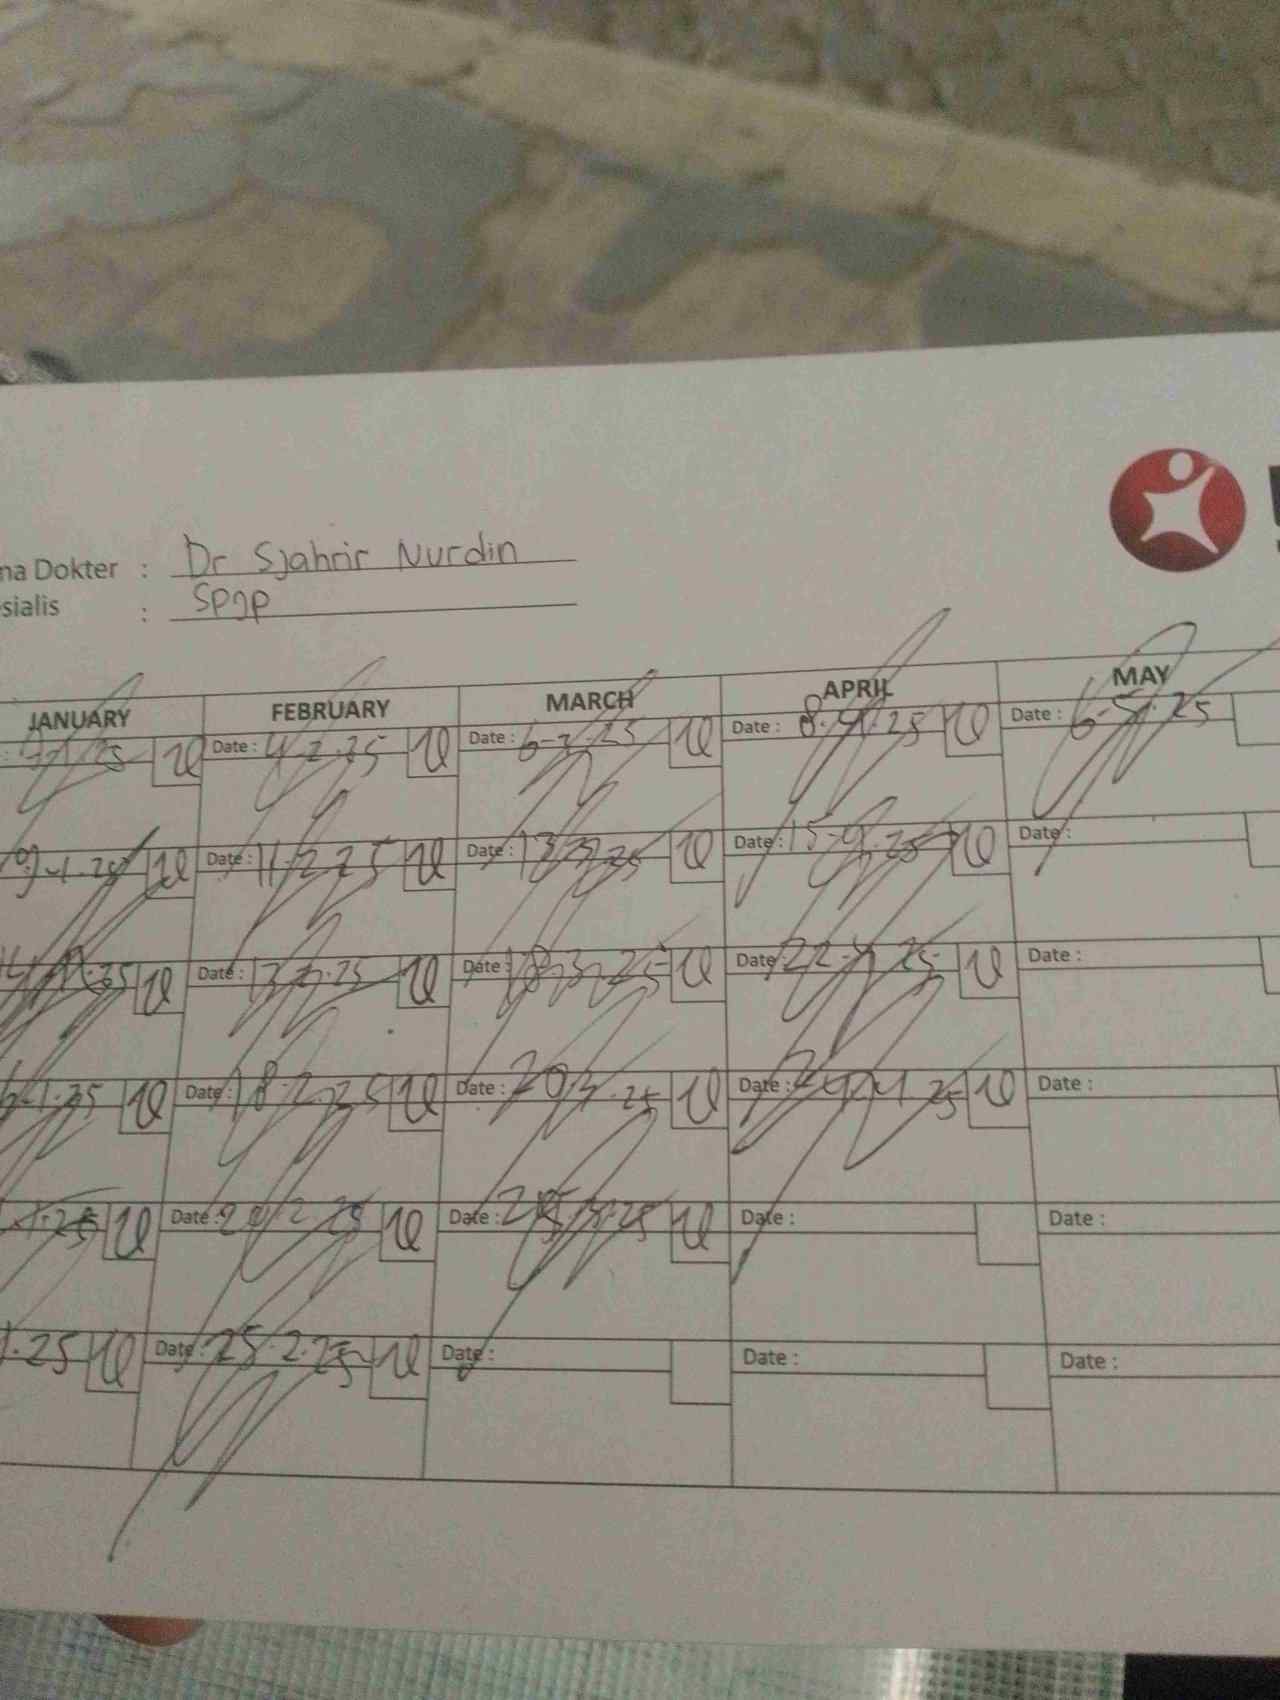 na Dokter : Dr Sjahrir Nurdin
sialis : SpJP
JANUARY FEBRUARY MARCH APRIL MAY
Date : 4-2-25 Date : 6-3-25 Date : 8-4-25 Date : 6-5-25
9-1-25 Date : 11-2-25 Date : 13-3-25 Date : 15-4-25 Date :
Date : 13-2-25 Date : 18-3-25 Date : 22-4-25 Date :
Date : 18-2-25 Date : 20-3-25 Date : 24-4-25 Date :
Date : 20-2-25 Date : 25-3-25 Date : Date :
.25 Date : 25-2-25 Date : Date : Date :